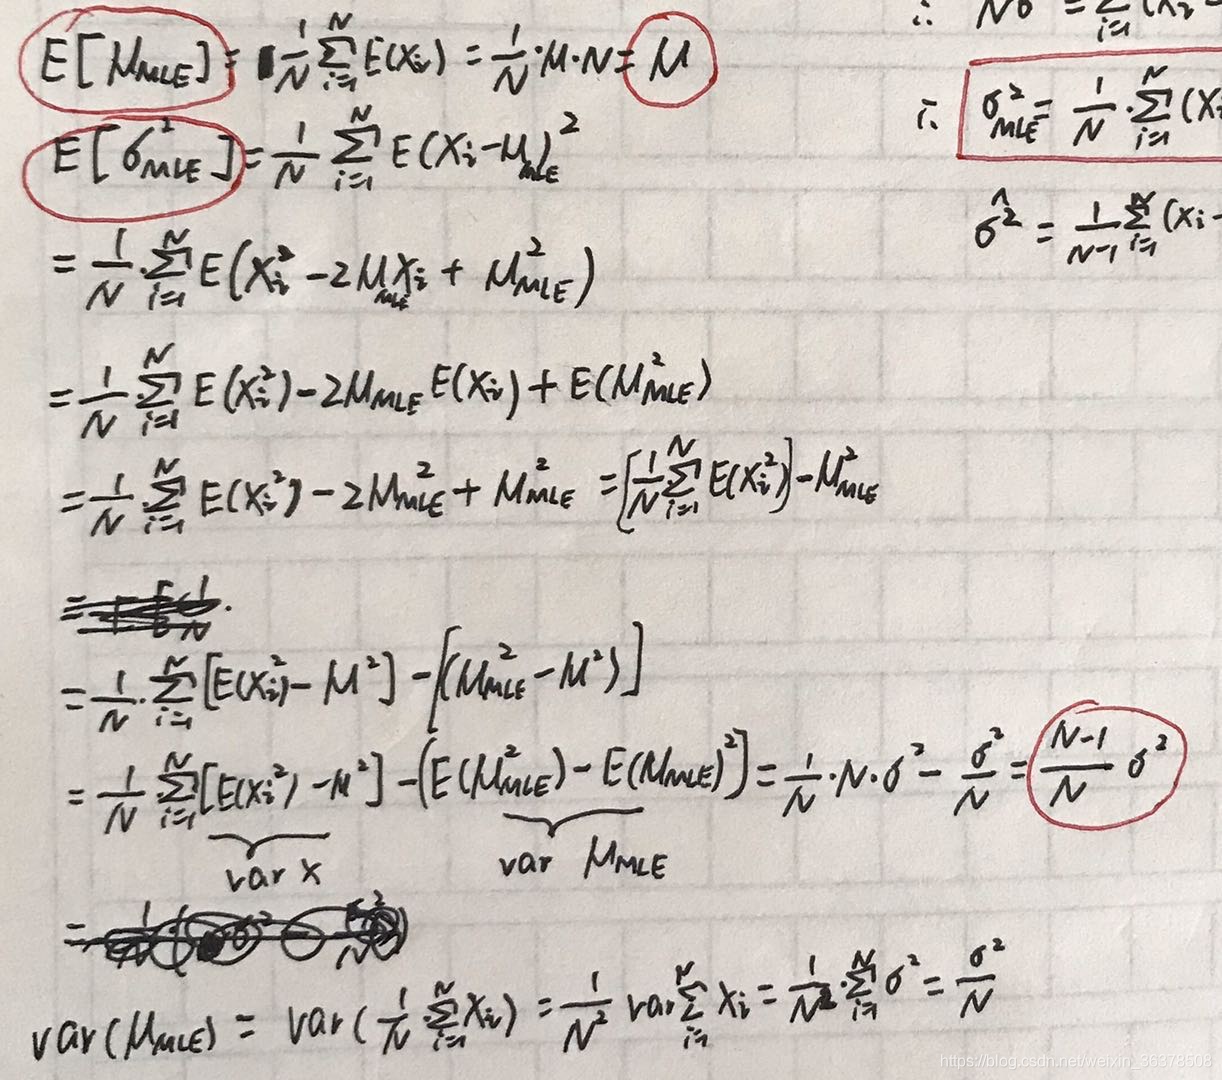 ∴ Nσ = Σ_{i=1} (x_i
E[μ_MLE] = 1/N Σ_{i=1}^{N} E(x_i) = 1/N · μ · N = μ
∴ σ²_MLE = 1/N · Σ_{i=1}^{N} (x
E[σ²_MLE] = 1/N Σ_{i=1}^{N} E(x_i - μ_MLE)²
σ̂² = 1/(N-1) Σ_{i=1}^{N} (x_i -
= 1/N · Σ_{i=1}^{N} E(x_i² - 2μ_MLE x_i + μ²_MLE)
= 1/N Σ_{i=1}^{N} E(x_i²) - 2μ_MLE E(x_i) + E(μ²_MLE)
= 1/N Σ_{i=1}^{N} E(x_i²) - 2μ²_MLE + μ²_MLE = [1/N Σ_{i=1}^{N} E(x_i²)] - μ²_MLE
= 1/N · Σ_{i=1}^{N} [E(x_i²) - μ²] - [(μ²_MLE - μ²)]
= 1/N Σ_{i=1}^{N} [E(x_i²) - μ²] - (E(μ²_MLE) - E(μ_MLE)²] = 1/N · N · σ² - σ²/N = (N-1)/N σ²
var x var μ_MLE
var(μ_MLE) = var(1/N · Σ_{i=1}^{N} x_i) = 1/N² var Σ_{i=1}^{N} x_i = 1/N² · Σ_{i=1}^{N} σ² = σ²/N
https://blog.csdn.net/weixin_36378508